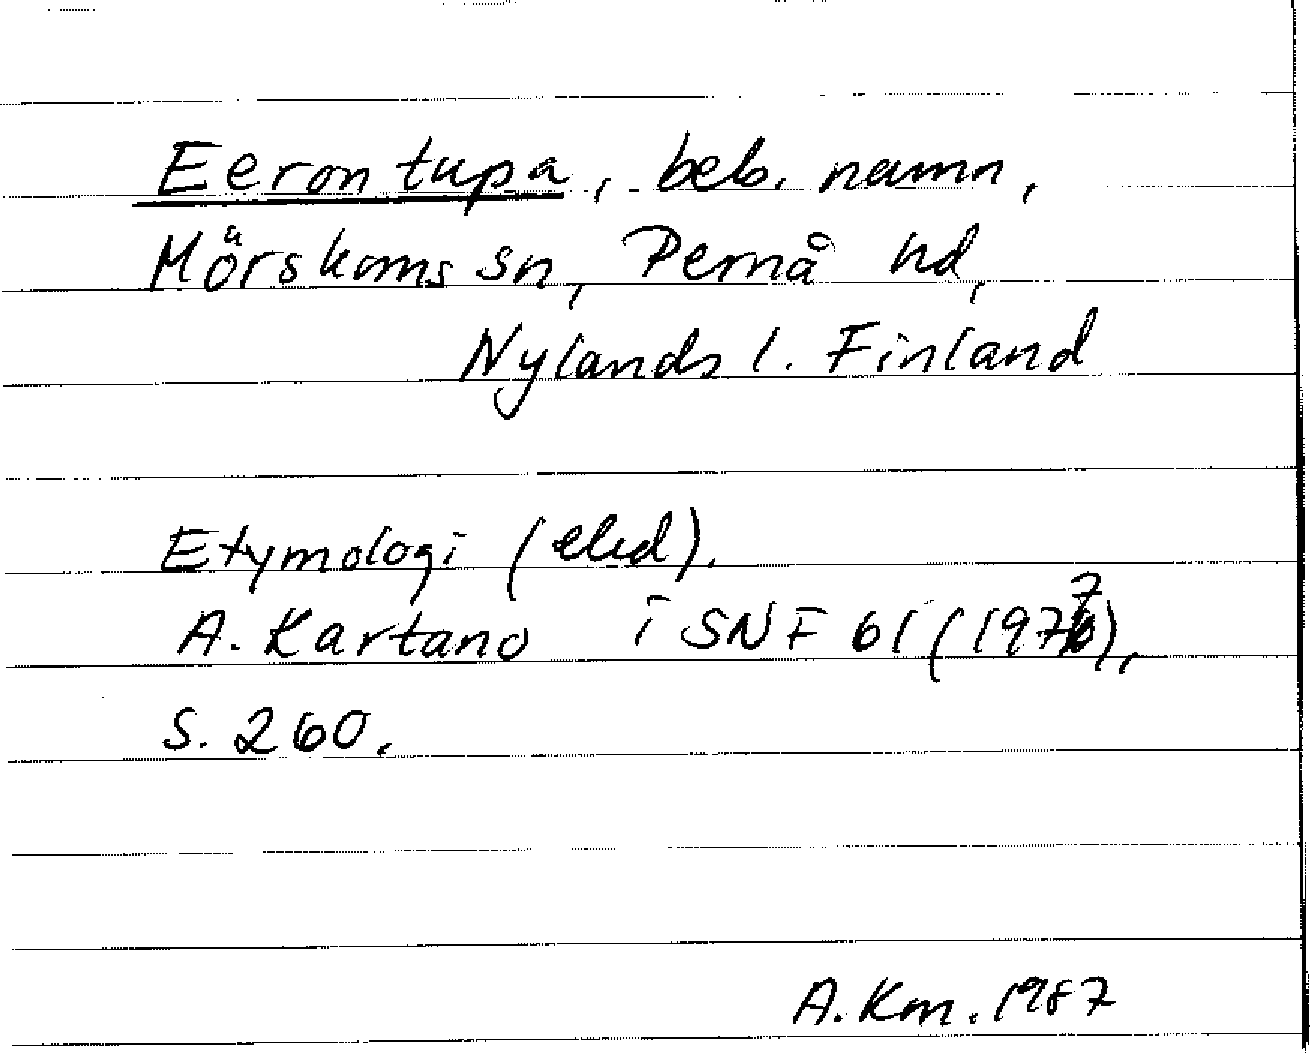 Eeron tupa, beb. namn,
Mörskoms sn, Pernå hd,
Nylands l. Finland
Etymologi (elud).
A. Kartano i SNF 61 (1977),
S. 260.
A. Km. 1987